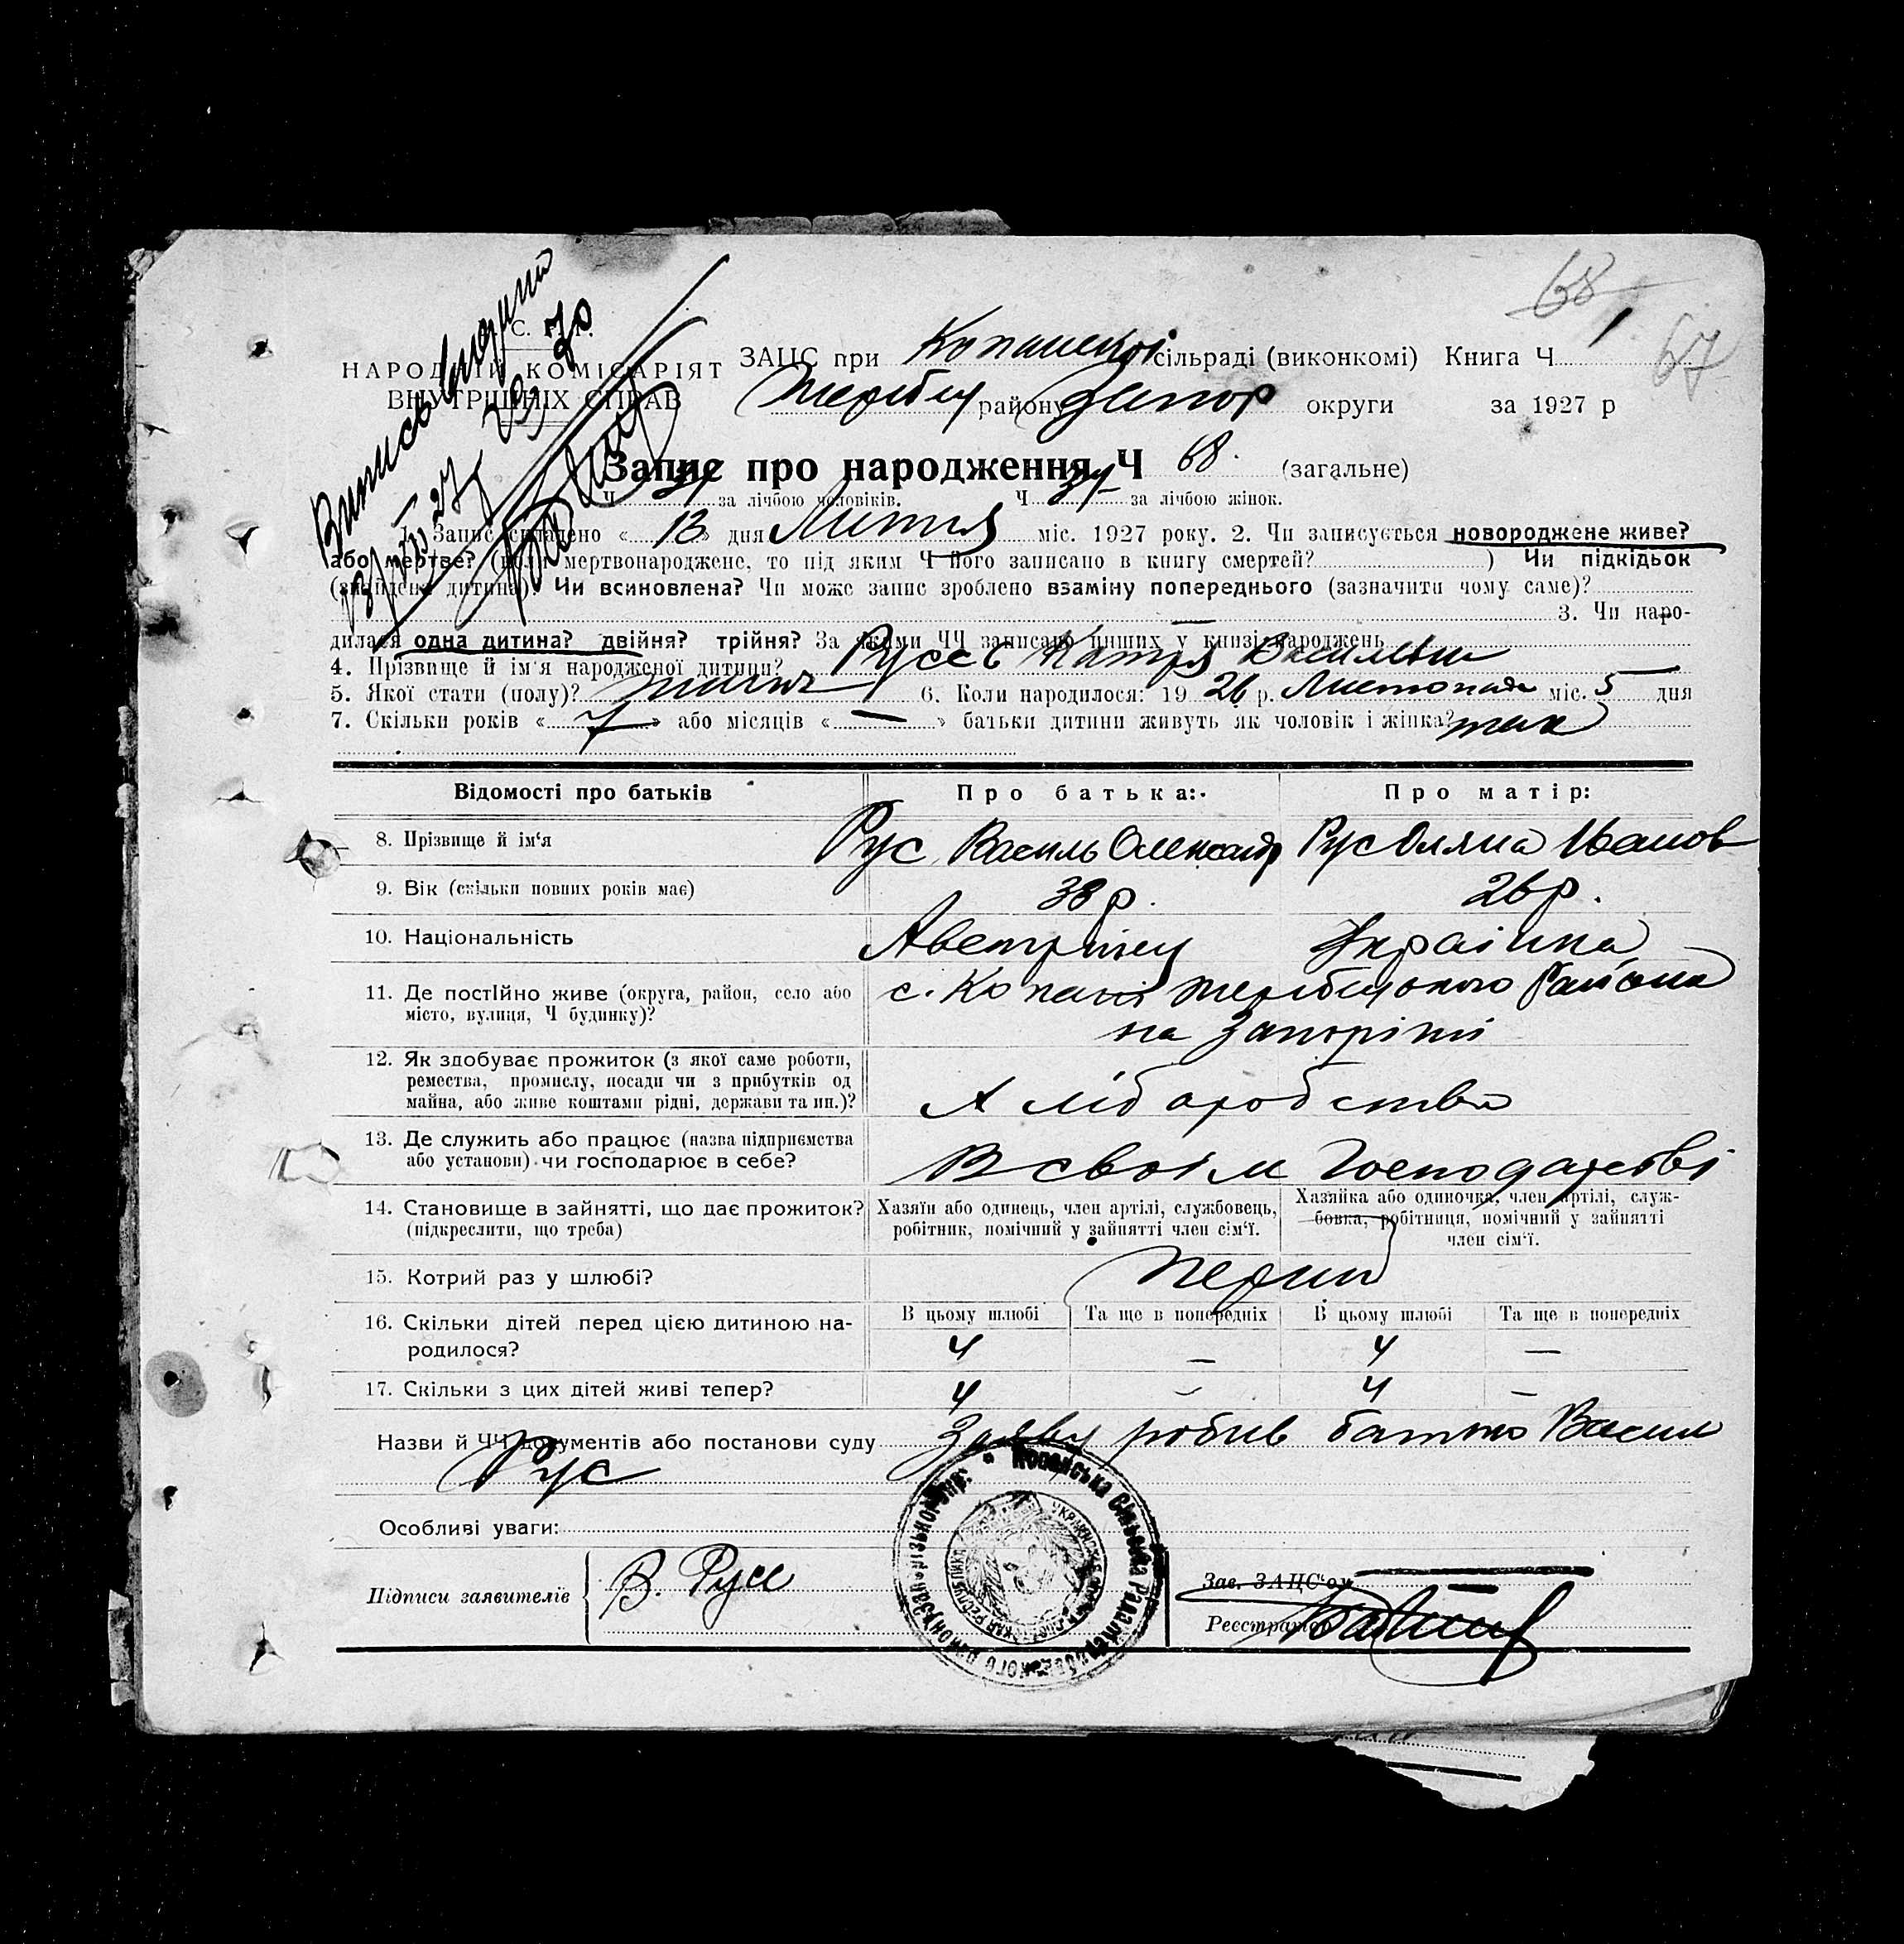 68
67
С. Р. Р.
НАРОДНІЙ КОМІСАРІЯТ
ВНУТРІШНІХ СПРАВ
ЗАЦС при Копанской сільраді (виконкомі) Книга Ч 1
Жеребец району Запор округи за 1927 р
Запис про народження Ч 68. (загальне)
Ч за лічбою чоловіків. Ч 34 за лічбою жінок.
1. Запис складено « 13 » дня Липня міс. 1927 року. 2. Чи записується новороджене живе?
або мертве? (коли мертвонароджене, то під яким Ч його записано в книгу смертей? ) Чи підкідьок
(знайдена дитина). Чи всиновлена? Чи може запис зроблено взаміну попереднього (зазначити чому саме)?
3. Чи наро-
дилася одна дитина? двійня? трійня? За якими ЧЧ записано инших у книзі народжень —
4. Прізвище й ім'я народженої дитини? Руссъ Катря Васильи
5. Якої стати (полу)? жіноч 6. Коли народилося: 19 26 р. Листопада міс. 5 дня
7. Скільки років « 7 » або місяців « — » батьки дитини живуть як чоловік і жінка? так
Відомості про батьків Про батька: Про матір:
8. Прізвище й ім'я Рус Василь Олександр Рус Оляна Іванов
9. Вік (скільки повних років має) 38 р. 26 р.
10. Національність Австріец Украінка
11. Де постійно живе (округа, район, село або с. Копані Жеребцького Района
місто, вулиця, Ч будинку)? на Запоріжжі
12. Як здобуває прожиток (з якої саме роботи,
ремества, промислу, посади чи з прибутків од
майна, або живе коштами рідні, держави та ин.)? Хлібаробства
13. Де служить або працює (назва підприємства
або установи) чи господарює в себе? В своім Господарстві
14. Становище в зайнятті, що дає прожиток? Хазяїн або одинець, член артілі, службовець, Хазяйка або одиночка, член артілі, служ-
(підкреслити, що треба) робітник, помічний у зайнятті член сім'ї. бовка, робітниця, помічний у зайнятті
член сім'ї.
15. Котрий раз у шлюбі? Перши
16. Скільки дітей перед цією дитиною на- В цьому шлюбі Та ще в попередніх В цьому шлюбі Та ще в попередніх
родилося? 4 — 4 —
17. Скільки з цих дітей живі тепер? 4 — 4 —
Назви й ЧЧ документів або постанови суду Заяву робив батько Васил
Рус
Особливі уваги:
Підписи заявителів В. Русс
Зав. ЗАЦС'ом
Реєстратор
Копанська Сільська Рада